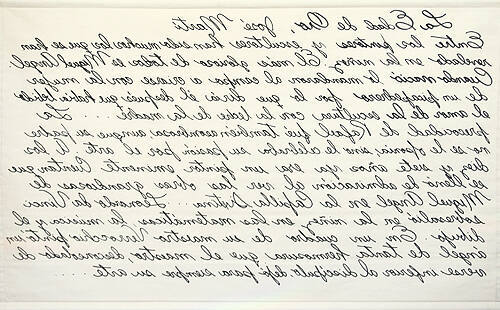 La Edad de Oro, José Martí
Entre los pintores y escultores han sido muchos los que se han
revelado en la niñez. El más glorioso de todos es Miguel Angel.
Cuando nació lo mandaron al campo a criarse con la mujer
de un picapedrero por lo que decía él después que había bebido
el amor de la escultura con la leche de la madre..... La
precocidad de Rafael fue también asombrosa, aunque su padre
no se le oponía, sino le celebraba su pasión por el arte. A los
diez y siete años ya era un pintor eminente. Cuentan que
se llenó de admiración al ver las obras grandiosas de
Miguel Angel en la Capilla Sixtina.... Leonardo da Vinci
sobresalió en la niñez en las matemáticas, la música y el
dibujo. En un cuadro de su maestro Verrocchio pintó un
angel de tanta hermosura que el maestro desconsolado de
verse inferior al discípulo dejó para siempre su arte.....